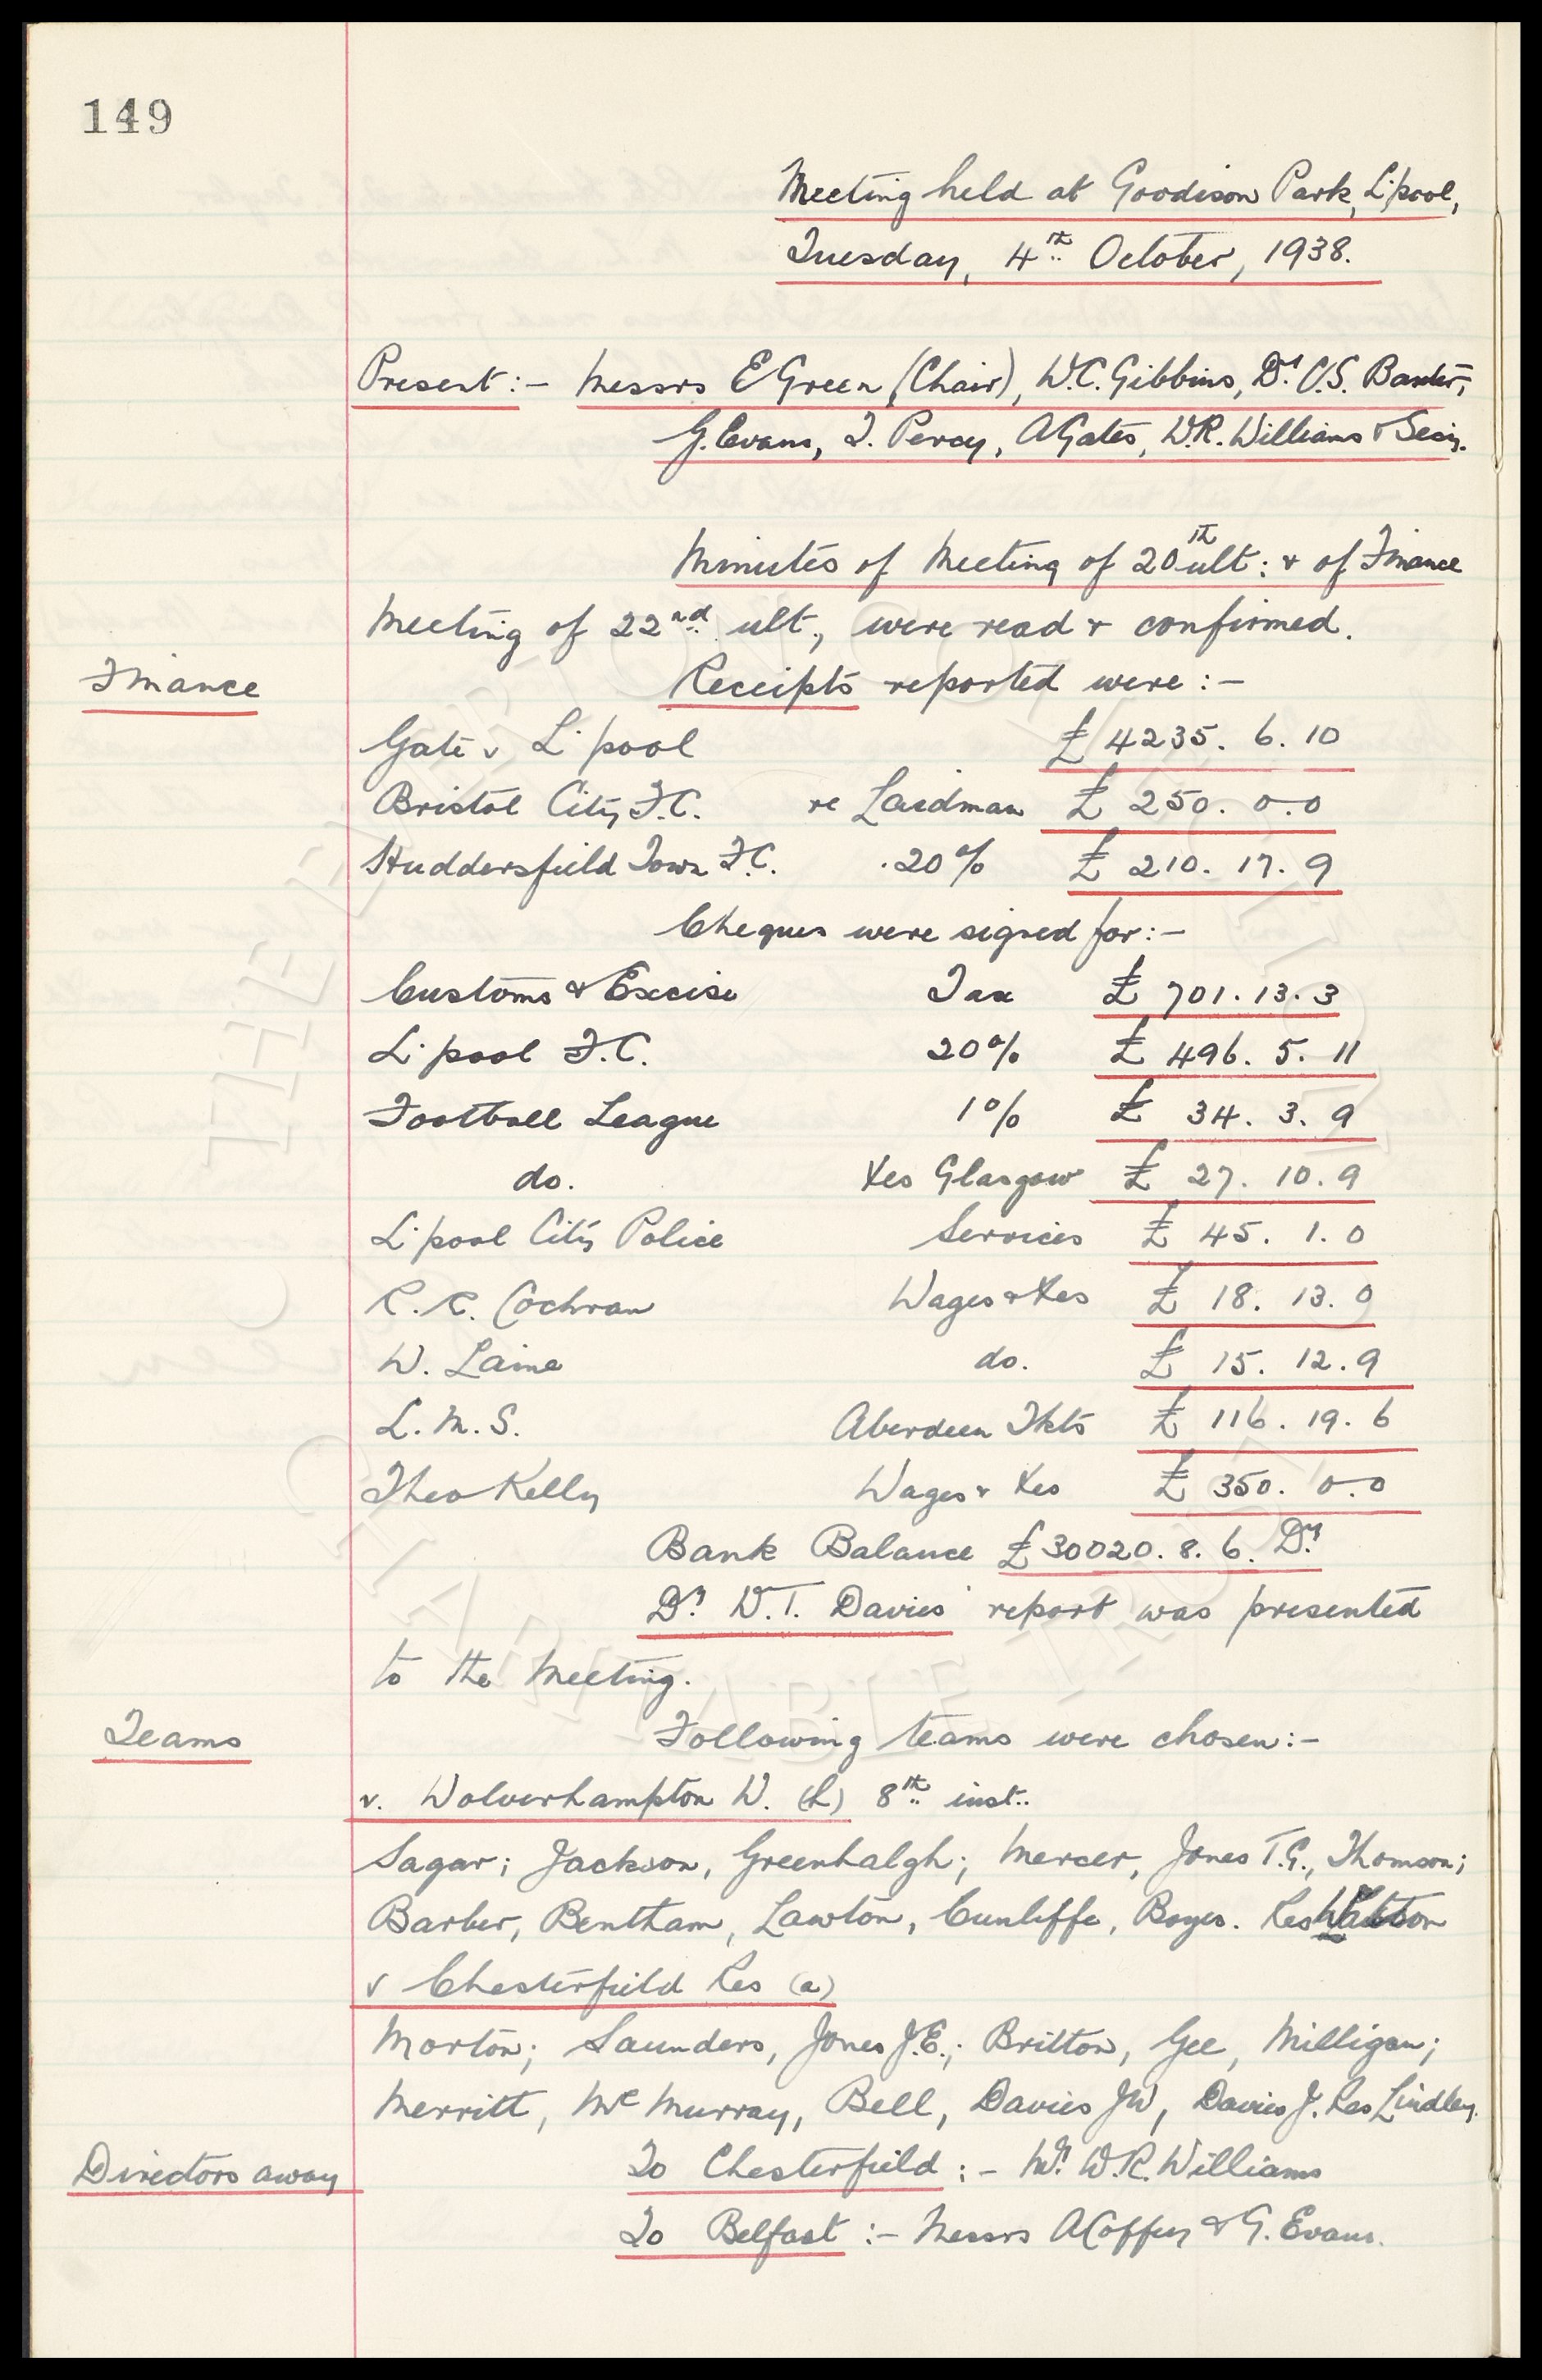 149
Meeting held at Goodison Park, L'pool,
Tuesday, 4th October, 1938.
Present :- Messrs E Green (Chair), W.C. Gibbins, Dr C.S. Baxter,
G. Evans, T. Percy, A Gates, W.R. Williams & Secy.
Minutes of Meeting of 20th ult: & of Finance
Meeting of 22nd ult, were read & confirmed.
Finance
Receipts reported were :-
Gate v L'pool £ 4235. 6. 10
Bristol City F.C. re Laidman £ 250. 0. 0
Huddersfield Town F.C. 20% £ 210. 17. 9
Cheques were signed for :-
Customs & Excise Tax £ 701. 13. 3
L'pool F.C. 20% £ 496. 5. 11
Football League 1% £ 34. 3. 9
do. Xes Glasgow £ 27. 10. 9
L'pool City Police Services £ 45. 1. 0
R. R. Cochran Wages & Xes £ 18. 13. 0
W. Laine do. £ 15. 12. 9
L. M. S. Aberdeen Tkts £ 116. 19. 6
Theo Kelly Wages & Xes £ 350. 0. 0
Bank Balance £30020. 8. 6. Dr
Dr W.T. Davies' report was presented
to the Meeting.
Teams
Following teams were chosen :-
v. Wolverhampton W. (h) 8th inst.
Sagar; Jackson, Greenhalgh; Mercer, Jones T.G., Thomson;
Barber, Bentham, Lawton, Cunliffe, Boyes. Res Watson
v Chesterfield Res (a)
Morton; Saunders, Jones J.E.; Britton, Gee, Milligan;
Merritt, McMurray, Bell, Davies JW, Davies J. Res Lindley.
Directors away
To Chesterfield :- Mr W.R. Williams
To Belfast :- Messrs A Coffey & G. Evans.